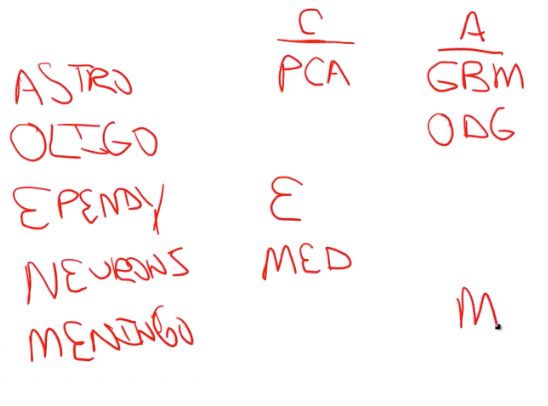 C A
ASTRO PCA GBM
OLIGO ODG
EPENDY E
NEURONS MED
MENINGO M